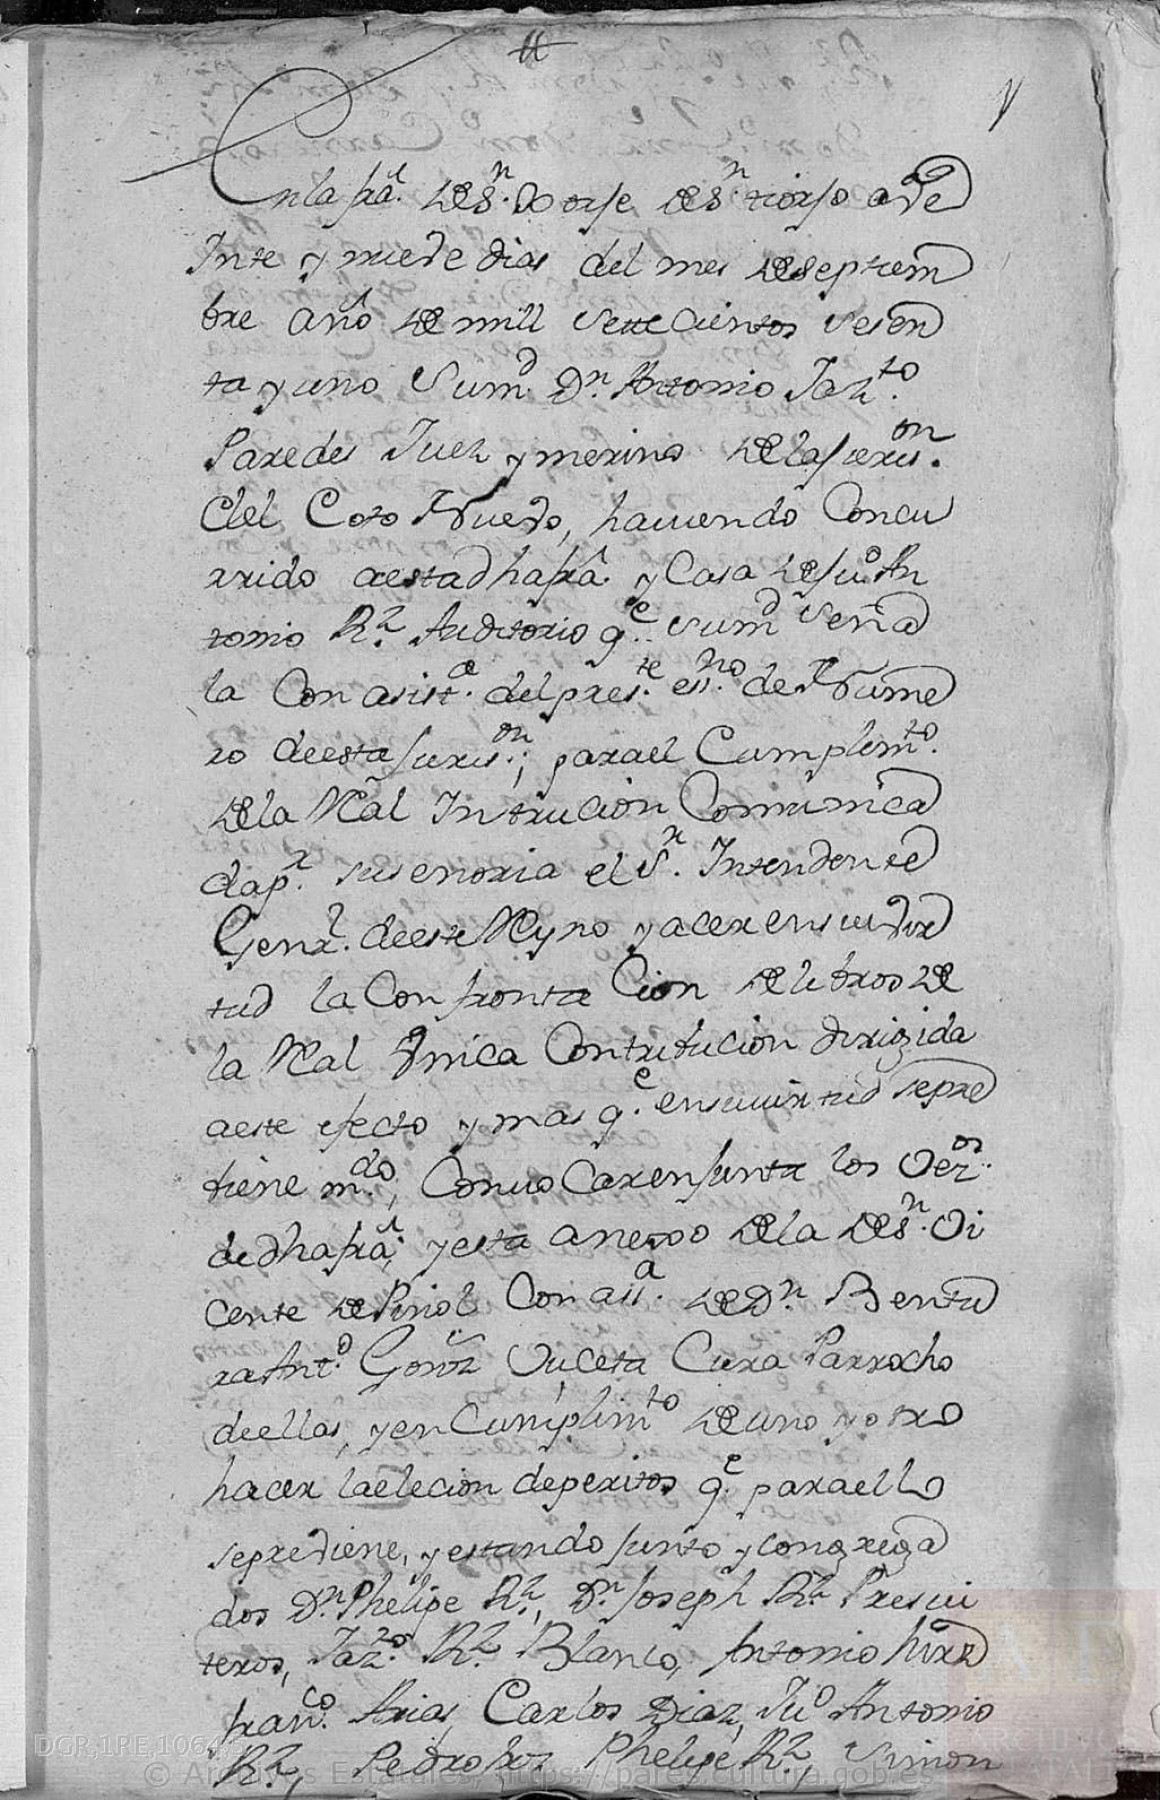 En la fra.l de S.n Jorje de S.n tiorjo a Ve
Inte y nueve dias del mes de septiem
bre año de mill Setecientos Sesen
ta y uno Sum.d D.n Antonio Jaz.to
Paredes Juez y merino de la Juris.on
del Coto Nuevo, haviendo Concu
rrido a esta dha fra.l y Casa de Ju.o An
tonio R.z Auditorio q.e Sum.d Seña
la Con asist.a del pres.te ess.no de Nume
ro de esta Juris.on; para el Cumplim.to
de la Real Intrucion Comunica
da p.r su senoria el S.r Intendente
Genr.l de este Reyno y acer en su vir
tud la Confronta Cion de libros de
la Real Unica Contribucion dirigida
a este efecto y mas q.e en su virtud se pre
tiene m.do, Convo Car en Junta los Vez.os
de dha fra.l, y esta anexo de la de S.n Vi
cente de Pinol Con asis.a de D.n Bentu
ra Ant.o Gonz Vuceta Cura Parrocho
de ellas, y en Cumplim.to de uno y otro
hacer la elecion de peritos q.e para ello
se previene, y estando Junto y congrega
dos D.n Phelipe R.z, D.n Joseph R.z Presvi
teros, Jaz.to R.z Blanco, Antonio
fran.co Arias, Carlos Diaz, Ju.o Antonio
R.z, Pedro Phelipe R.z, Simon
DGR,1RE,10643
© Archivos Estatales, https://pares.cultura.gob.es